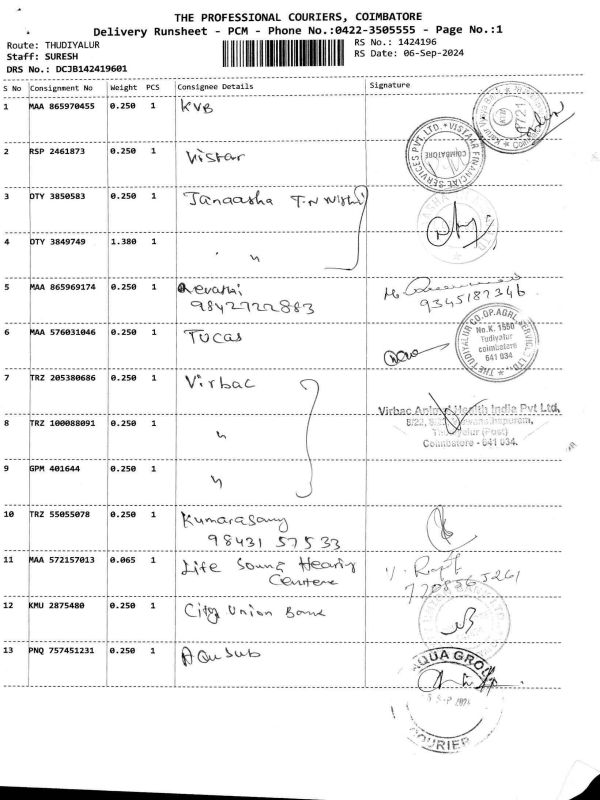 THE PROFESSIONAL COURIERS, COIMBATORE
Delivery Runsheet - PCM - Phone No.:0422-3505555 - Page No.:1
Route: THUDIYALUR
RS No.: 1424196
Staff: SURESH
RS Date: 06-Sep-2024
DRS No.: DCJB142419601
S No Consignment No Weight PCS Consignee Details Signature
1 MAA 865970455 0.250 1 KVB
2 RSP 2461873 0.250 1 Vistar
VISTAAR FINANCIAL SERVICES PVT LTD. COIMBATORE
3 OTY 3850583 0.250 1 Janaasha T.N
4 OTY 3849749 1.380 1 "
5 MAA 865969174 0.250 1 Revathi
9842722883
9345187346
6 MAA 576031046 0.250 1 TUCAS
THE TUDIYALUR CO.OP.AGRL.SERVICES LTD.,
No.K. 1550
Tudiyalur
coimbatore
641 034
7 TRZ 205380686 0.250 1 Virbac
Virbac Animal Health India Pvt Ltd,
8 TRZ 100088091 0.250 1 "
Coimbatore - 641 034.
9 GPM 401644 0.250 1 "
10 TRZ 55055078 0.250 1 Kumarasamy
98431 57533
11 MAA 572157013 0.065 1 Life Sound Hearing
Centere
7708565261
12 KMU 2875480 0.250 1 City Union Bank
13 PNQ 757451231 0.250 1 Aqusub
AQUA GROUP
SEP 2024
COURIER